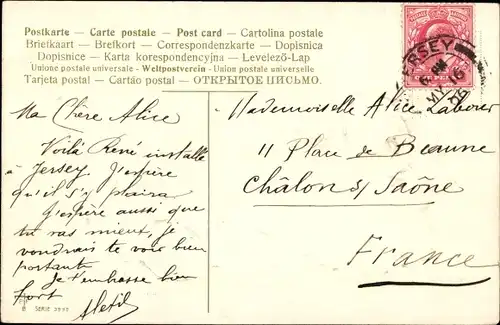 Postkarte — Carte postale — Post card — Cartolina postale
Briefkaart — Brefkort — Correspondenzkarte — Dopisnica
Dopisnice — Karta korespondencyjna — Levelező-Lap
Unione postale universale - Weltpostverein - Union postale universelle
Tarjeta postal — Cartão postal — ОТКРЫТОЕ ПИСЬМО.
JERSEY
MY 16
05
Ma Chère Alice
Voilà René installé
à Jersey. J'espère
qu'il s'y plaira
J'espère aussi que
tu vas mieux, je
voudrais te voir bien
portante
Je t'embrasse bien
fort
Mademoiselle Alice
11 Place de Beaune
Châlon s/ Saône
France
SERIE